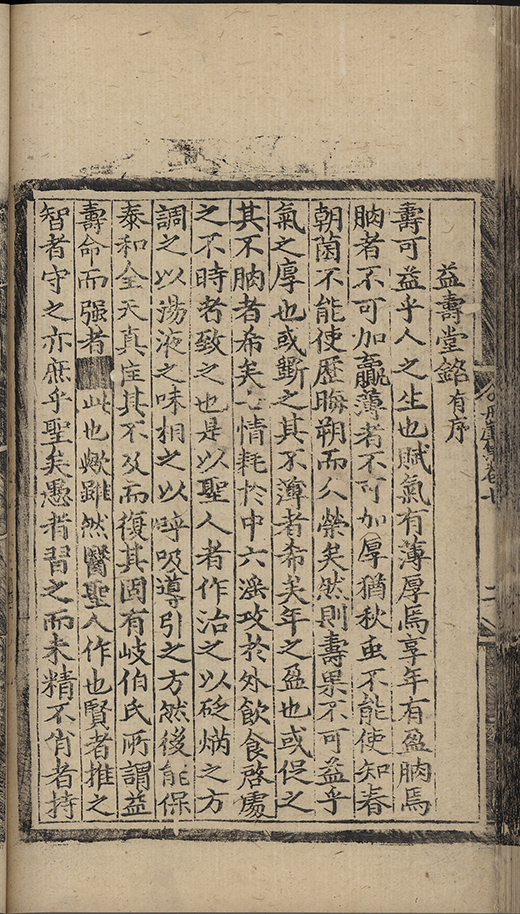 益壽堂銘有序
壽可益乎人之生也賦氣有薄厚焉享年有盈朒焉
朒者不可加贏薄者不可加厚猶秋虫不能使知春
朝菌不能使歷晦朔而久榮矣然則壽果不可益乎
氣之厚也或斲之其不薄者希矣年之盈也或促之
其不朒者希矣七情耗於中六滛攻於外飲食啓處
之不時者致之也是以聖人者作治之以砭焫之方
調之以湯液之味相之以呼吸導引之方然後能保
泰和全天真注其不及而復其固有岐伯氏所謂益
壽命而强者此也歟雖然醫聖人作也賢者推之
智者守之亦庶乎聖矣愚者習之而未精不肖者持